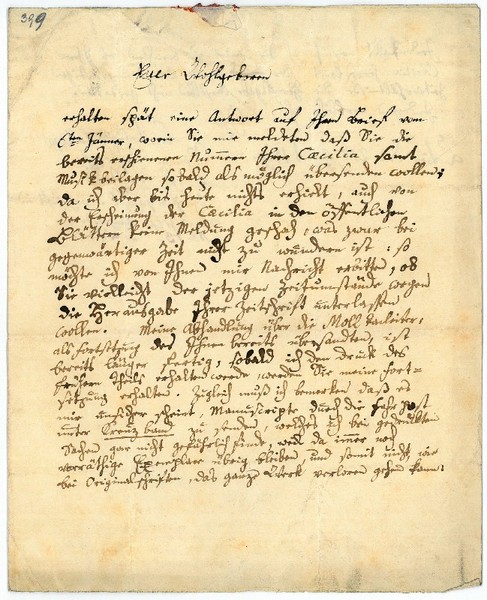 399
Euer Wohlgeboren
erhalten spät eine Antwort auf Ihren Brief vom
6ten Jänner, worin Sie mir meldeten daß Sie die
bereits erschienenen Nummern Ihrer Caecilia samt
Musikbeilagen sobald als möglich übersenden wollen;
da ich aber bis heute nichts erhielt, auch von
der Erscheinung der Caecilia in den öffentlichen
Blättern keine Meldung geschah, was zwar bei
gegenwärtiger Zeit nicht zu wundern ist: so
möchte ich von Ihnen mir Nachricht erbitten, ob
Sie vielleicht der jetzigen Zeitumstände wegen
die Herausgabe Ihrer Zeitschrift unterlassen
wollen. Meine Abhandlung über die Moll Tonleiter,
als Fortsetzung der Ihnen bereits übersandten, ist
bereits länger fertig, sobald ich den Druck des
frühern Theils erhalten werde, werden Sie meine Fort=
setzung erhalten. Zugleich muß ich bemerken daß es
mir unsicher scheint, Manuscripte durch die fahr Post
unter Kreuzband zu senden, welches ich bei gedruckten
Sachen gar nicht gefährlich finde, weil da immer noch
vorräthige Exemplare übrig bleiben und somit nicht, wie
bei Originalschriften, das ganze Werk verloren gehen kann: